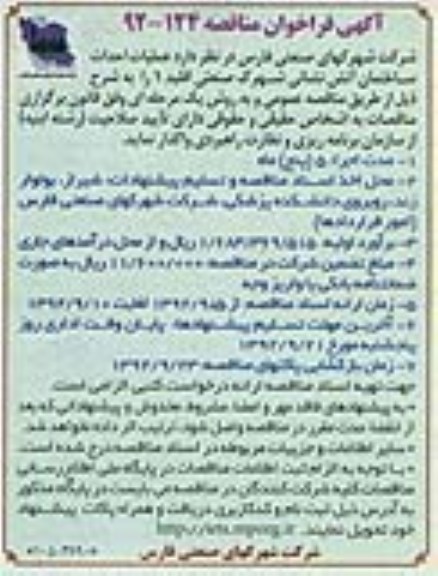 آگهی فراخوان مناقصه ۱۴۴-۹۲
شرکت شهرکهای صنعتی فارس در نظر دارد عملیات احداث
ساختمان آتش نشانی شهرک صنعتی اقلید ۱ را به شرح
ذیل از طریق مناقصه عمومی و به روش یک مرحله ای وفق قانون برگزاری
مناقصات به اشخاص حقیقی و حقوقی دارای تأیید صلاحیت (رشته ابنیه)
از سازمان برنامه ریزی و نظارت راهبردی واگذار نماید.
۱- مدت اجرا: ۵ (پنج) ماه
۲- محل اخذ اسناد مناقصه و تسلیم پیشنهادات: شیراز، بولوار
زند، روبروی دانشکده پزشکی، شرکت شهرکهای صنعتی فارس
(امور قراردادها)
۳- برآورد اولیه: ریال و از محل درآمدهای جاری
۴- مبلغ تضمین شرکت در مناقصه: ریال به صورت
ضمانتنامه بانکی یا واریز وجه
۵- زمان ارائه اسناد مناقصه: از ۱۳۹۲/۹/۵ لغایت ۱۳۹۲/۹/۱۰
۶- آخرین مهلت تسلیم پیشنهادها: پایان وقت اداری روز
پنجشنبه مورخ ۱۳۹۲/۹/۲۱
۷- زمان بازگشایی پاکتهای مناقصه: ۱۳۹۲/۹/۲۳
جهت تهیه اسناد مناقصه ارائه درخواست کتبی الزامی است.
* به پیشنهادهای فاقد مهر و امضا، مشروط، مخدوش و پیشنهاداتی که بعد
از انقضا مدت مقرر در مناقصه واصل شود، ترتیب اثر داده نخواهد شد.
* سایر اطلاعات و جزییات مربوطه در اسناد مناقصه درج شده است.
* با توجه به الزام ثبت اطلاعات مناقصات در پایگاه ملی اطلاع رسانی
مناقصات کلیه شرکت کنندگان در مناقصه می بایست در پایگاه مذکور
به آدرس ذیل ثبت نام و کد کاربری دریافت و همراه پاکات پیشنهاد
خود تحویل نمایند. http://iets.mporg.ir
شرکت شهرکهای صنعتی فارس